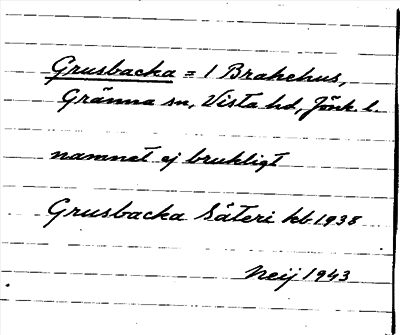 Grusbacka = 1 Brahehus,
Gränna sn, Vista hd, Jönk. l.
namnet ej brukligt
Grusbacka Säteri kb 1938
Neij 1943